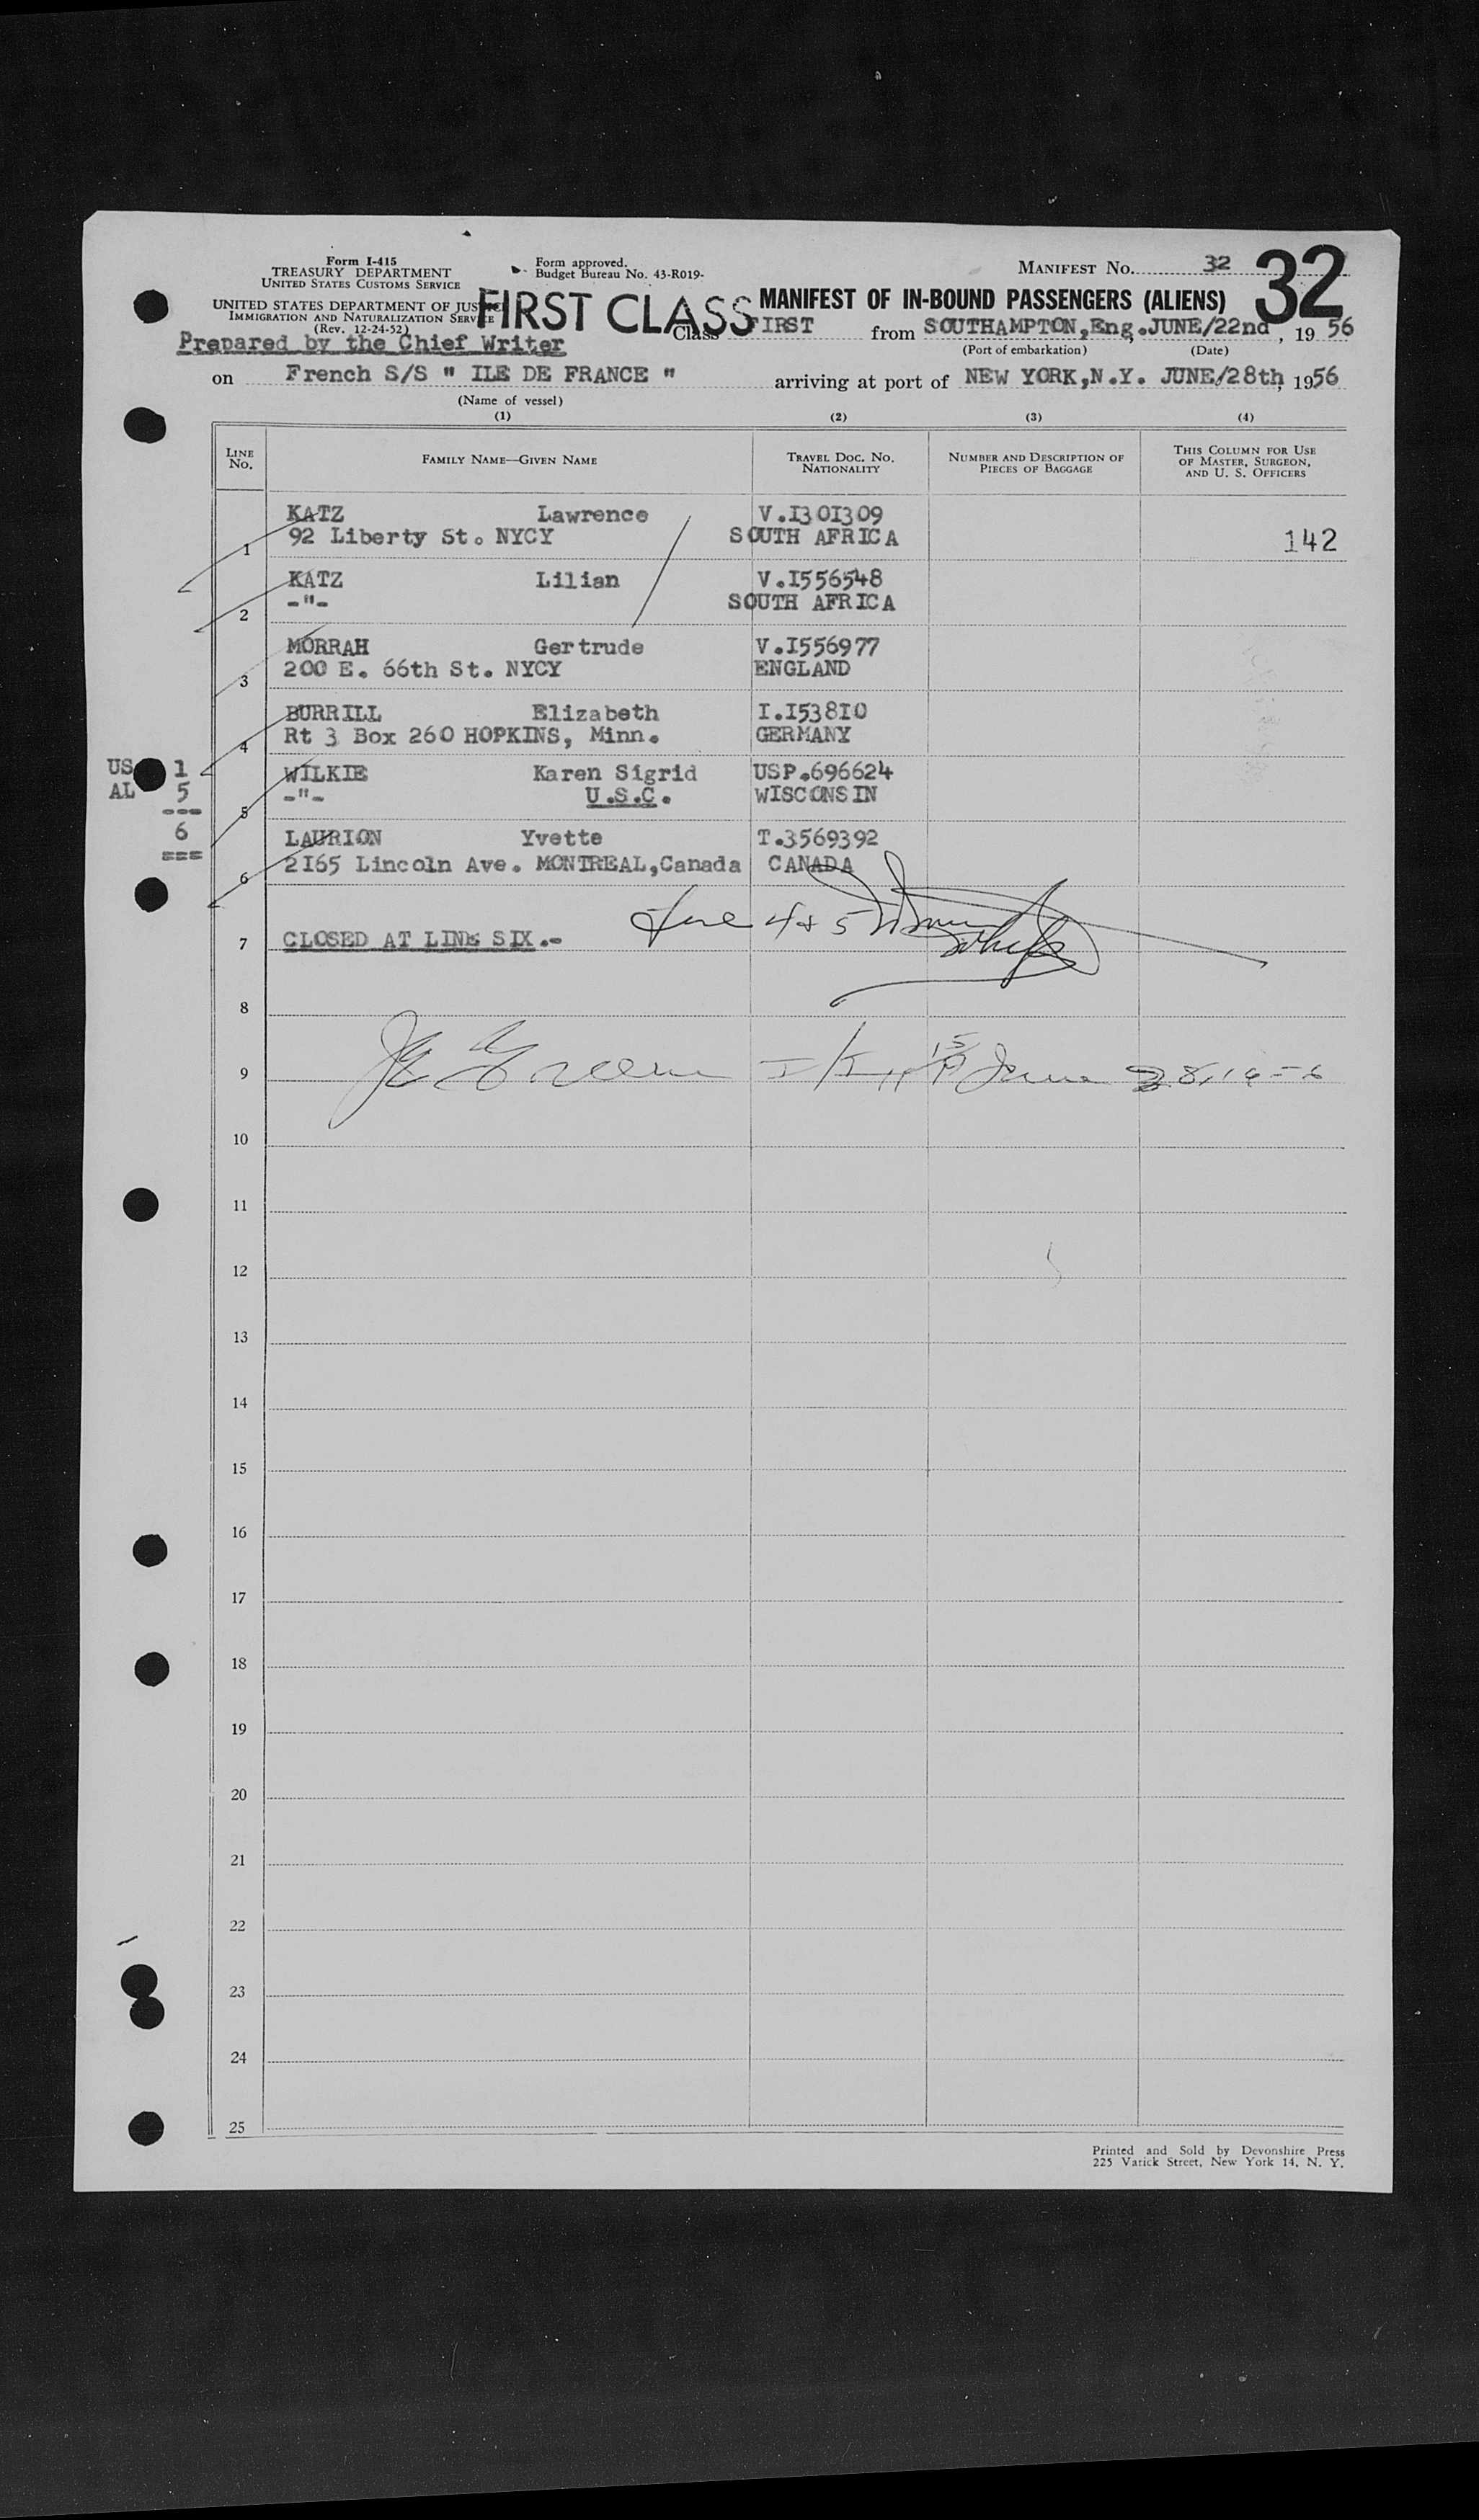 Form I-415
TREASURY DEPARTMENT
UNITED STATES CUSTOMS SERVICE
UNITED STATES DEPARTMENT OF JUSTICE
IMMIGRATION AND NATURALIZATION SERVICE
(Rev. 12-24-52)
Form approved.
Budget Bureau No. 43-R019-
MANIFEST No. 32
32
FIRST CLASS
MANIFEST OF IN-BOUND PASSENGERS (ALIENS)
Prepared by the Chief Writer
Class FIRST from SOUTHAMPTON,Eng. JUNE/22nd, 1956
(Port of embarkation) (Date)
on French S/S " ILE DE FRANCE " arriving at port of NEW YORK,N.Y. JUNE/28th, 1956
(Name of vessel)
(1) (2) (3) (4)
LINE No. FAMILY NAME—GIVEN NAME TRAVEL DOC. No. NATIONALITY NUMBER AND DESCRIPTION OF PIECES OF BAGGAGE THIS COLUMN FOR USE OF MASTER, SURGEON, AND U. S. OFFICERS
KATZ Lawrence V.I30I309
1 92 Liberty St. NYCY SOUTH AFRICA 142
KATZ Lilian V.I556548
2 -"- SOUTH AFRICA
MORRAH Gertrude V.I556977
3 200 E. 66th St. NYCY ENGLAND
BURRILL Elizabeth I.I538I0
4 Rt 3 Box 260 HOPKINS, Minn. GERMANY
US 1
AL 5
---
6
===
WILKIE Karen Sigrid USP.696624
5 -"- U.S.C. WISCONSIN
LAURION Yvette T.3569392
6 2I65 Lincoln Ave. MONTREAL,Canada CANADA
7 CLOSED AT LINE SIX.-
4 & 5
8
9 Green June 28, 1956
10
11
12
13
14
15
16
17
18
19
20
21
22
23
24
25
Printed and Sold by Devonshire Press
225 Varick Street, New York 14, N. Y.